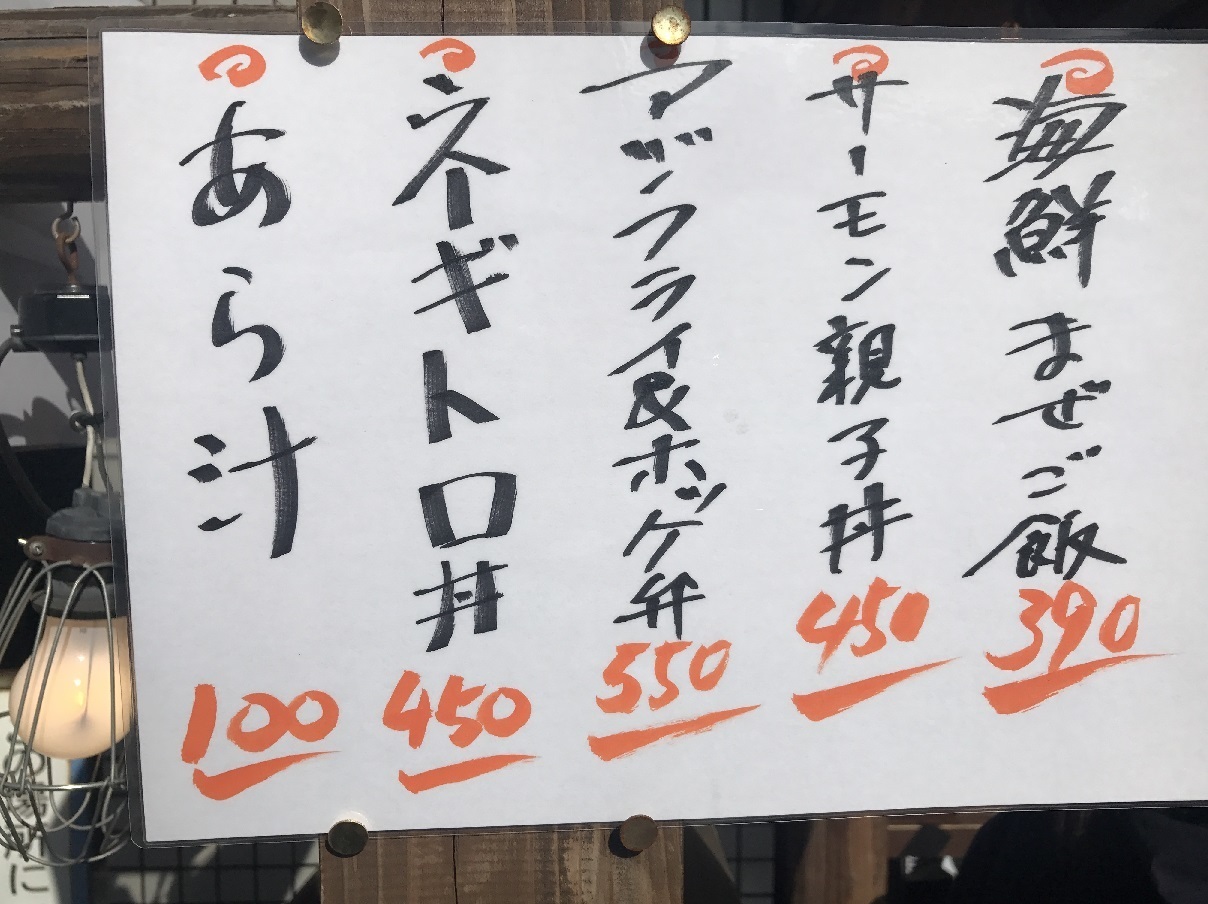 海鮮まぜご飯
390
サーモン親子丼
450
アジフライ&ホッケ弁
550
ネギトロ丼
450
あら汁
100
に